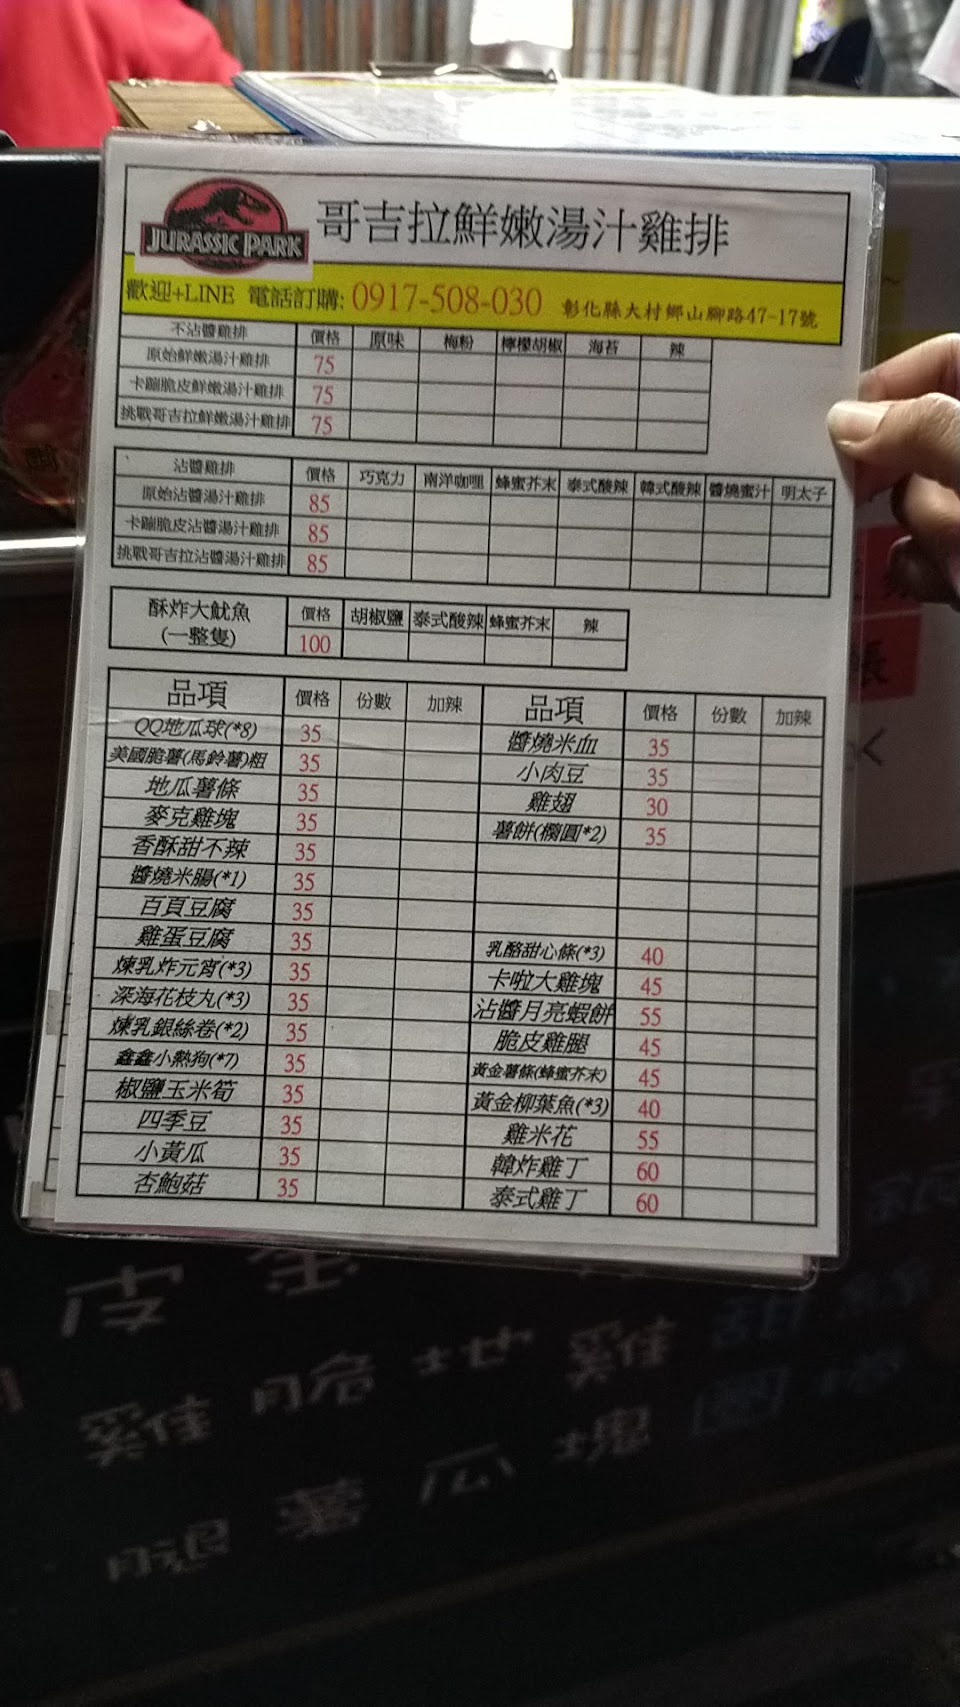 JURASSIC PARK
哥吉拉鮮嫩湯汁雞排
歡迎+LINE 電話訂購: 0917-508-030 彰化縣大村鄉山腳路47-17號
不沾醬雞排 價格 原味 梅粉 檸檬胡椒 海苔 辣
原始鮮嫩湯汁雞排 75
卡蹦脆皮鮮嫩湯汁雞排 75
挑戰哥吉拉鮮嫩湯汁雞排 75
沾醬雞排 價格 巧克力 南洋咖哩 蜂蜜芥末 泰式酸辣 韓式酸辣 醬燒蜜汁 明太子
原始沾醬湯汁雞排 85
卡蹦脆皮沾醬湯汁雞排 85
挑戰哥吉拉沾醬湯汁雞排 85
酥炸大魷魚 價格 胡椒鹽 泰式酸辣 蜂蜜芥末 辣
(一整隻) 100
品項 價格 份數 加辣 品項 價格 份數 加辣
QQ地瓜球(*8) 35 醬燒米血 35
美國脆薯(馬鈴薯)粗 35 小肉豆 35
地瓜薯條 35 雞翅 30
麥克雞塊 35 薯餅(橢圓*2) 35
香酥甜不辣 35
醬燒米腸(*1) 35
百頁豆腐 35
雞蛋豆腐 35 乳酪甜心條(*3) 40
煉乳炸元宵(*3) 35 卡啦大雞塊 45
深海花枝丸(*3) 35 沾醬月亮蝦餅 55
煉乳銀絲卷(*2) 35 脆皮雞腿 45
鑫鑫小熱狗(*7) 35 黃金薯條(蜂蜜芥末) 45
椒鹽玉米筍 35 黃金柳葉魚(*3) 40
四季豆 35 雞米花 55
小黃瓜 35 韓炸雞丁 60
杏鮑菇 35 泰式雞丁 60